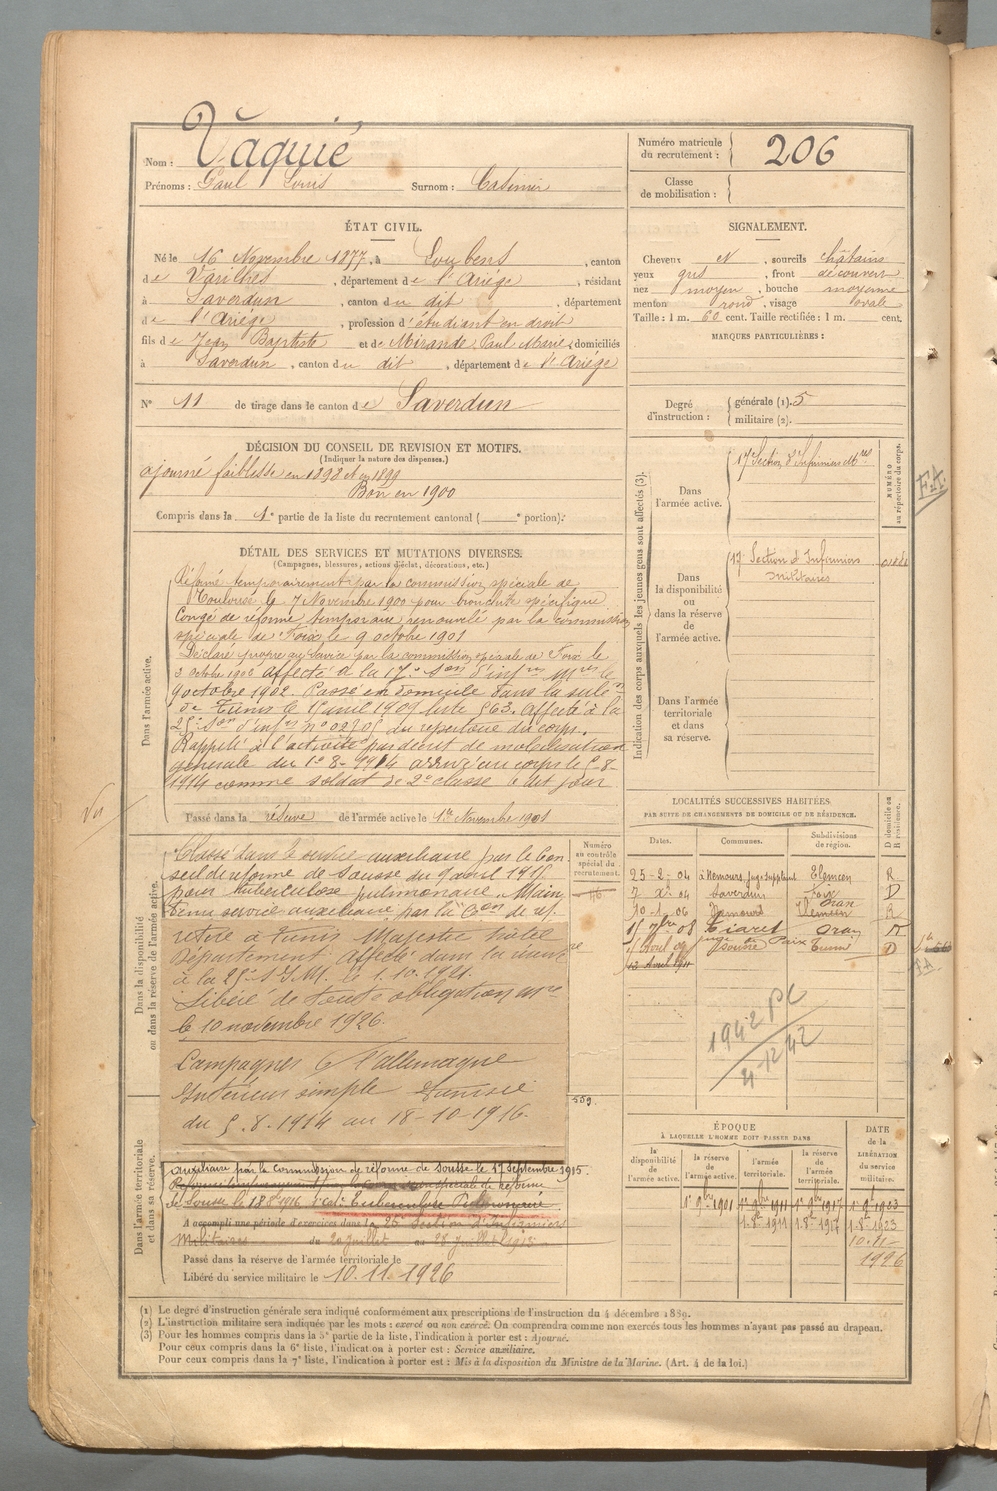 Nom : Vaquié
Prénoms : Paul Louis Surnom : Casimir
Numéro matricule du recrutement : 206
Classe de mobilisation :
ÉTAT CIVIL.
Né le 16 Novembre 1877, à Loubens, canton
de Varilhes, département de l'Ariége, résidant
à Saverdun, canton du dit, département
de l'Ariége, profession d'étudiant en droit
fils de Jean Baptiste et de Mirande Paul Marie, domiciliés
à Saverdun, canton du dit, département de l'Ariége
N° 11 de tirage dans le canton de Saverdun
SIGNALEMENT.
Cheveux N, sourcils châtains
yeux gris, front découvert
nez moyen, bouche moyenne
menton rond, visage ovale
Taille : 1 m. 60 cent. Taille rectifiée : 1 m. cent.
MARQUES PARTICULIÈRES :
Degré d'instruction : générale (1). 5
militaire (2).
DÉCISION DU CONSEIL DE REVISION ET MOTIFS.
(Indiquer la nature des dispenses.)
ajourné faiblesse en 1898 et en 1899
Bon en 1900
Compris dans la 1e partie de la liste du recrutement cantonal ( e portion).
DÉTAIL DES SERVICES ET MUTATIONS DIVERSES.
(Campagnes, blessures, actions d'éclat, décorations, etc.)
Dans l'armée active.
Réformé temporairement par la commission spéciale de
Toulouse le 7 Novembre 1900 pour bronchite spécifique
Congé de réforme temporaire renouvelé par la commission
spéciale de Foix le 9 octobre 1901
Déclaré propre au service par la commission spéciale de Foix le
3 octobre 1902 Affecté à la 17e Son d'infres Mres le
9 octobre 1902. Passé en domicile dans la subdon
de Tunis le 1er avril 1909 liste 563. Affecté à la
25e Son d'infres n° 02705 du répertoire du corps.
Rappelé à l'activité par décret de mobilisation
générale du 1er 8-1914 arrivé au corps le 5-8-
1914 comme soldat de 2e classe le dit jour
Passé dans la réserve de l'armée active le 1er Novembre 1901
Indication des corps auxquels les jeunes gens sont affectés (3).
Dans l'armée active.
17e Section d'Infirmiers Mres
NUMÉRO au répertoire du corps.
F.A.
Dans la disponibilité ou dans la réserve de l'armée active.
17e Section d'Infirmiers
militaires
Dans l'armée territoriale et dans sa réserve.
Vu
Dans la disponibilité ou dans la réserve de l'armée active.
Classé dans le service auxiliaire par le Con
seil de réforme de Sousse du 9 avril 1915
pour tuberculose pulmonaire. Main
tenu service auxiliaire par la Con de réf.
retiré à Tunis Majestic hôtel
Département affecté dans la réserve
à la 25e S.I.M. le 1.10.1921.
Libéré de toute obligation mre
le 10 novembre 1926.
Campagnes C/ l'allemagne
Intérieur simple Tunisie
du 5.8.1914 au 18-10-1916.
Numéro au contrôle spécial du recrutement.
46
559
LOCALITÉS SUCCESSIVES HABITÉES
PAR SUITE DE CHANGEMENTS DE DOMICILE OU DE RÉSIDENCE.
Dates. Communes. Subdivisions de région. D domicile ou R résidence.
25-2-04 à Nemours, juge suppléant Tlemcen R
7 Xe 04 Saverdun Foix D
10-1-06 Nemours Oran Tlemcen R
1er 7bre 08 Tiaret Oran R
1er Avril 09 juge de Paix Sousse Tunis D
12 Avril 1911
1942 PC
4 12 42
F.A.
Dans l'armée territoriale et dans sa réserve.
auxiliaire par la Commission de réforme de Sousse le 17 Septembre 1915.
A accompli une période d'exercices dans la 25e Section d'Infirmiers
Militaires du 20 Juillet au 28 Juillet 1913
Passé dans la réserve de l'armée territoriale le
Libéré du service militaire le 10.11.1926
ÉPOQUE
À LAQUELLE L'HOMME DOIT PASSER DANS
la disponibilité de l'armée active.
la réserve de l'armée active.
l'armée territoriale.
la réserve de l'armée territoriale.
DATE de la LIBÉRATION du service militaire.
1er 9bre 1901 1er 9bre 1911 1er 9bre 1917 1er 9bre 1923
1-8bre 1911 1.8bre 1917 1.8bre 1923
10.11-
1926
(1) Le degré d'instruction générale sera indiqué conformément aux prescriptions de l'instruction du 4 décembre 1889.
(2) L'instruction militaire sera indiquée par les mots : exercé ou non exercé. On comprendra comme non exercés tous les hommes n'ayant pas passé au drapeau.
(3) Pour les hommes compris dans la 5e partie de la liste, l'indication à porter est : Ajourné.
Pour ceux compris dans la 6e liste, l'indication à porter est : Service auxiliaire.
Pour ceux compris dans la 7e liste, l'indication à porter est : Mis à la disposition du Ministre de la Marine. (Art. 4 de la loi.)